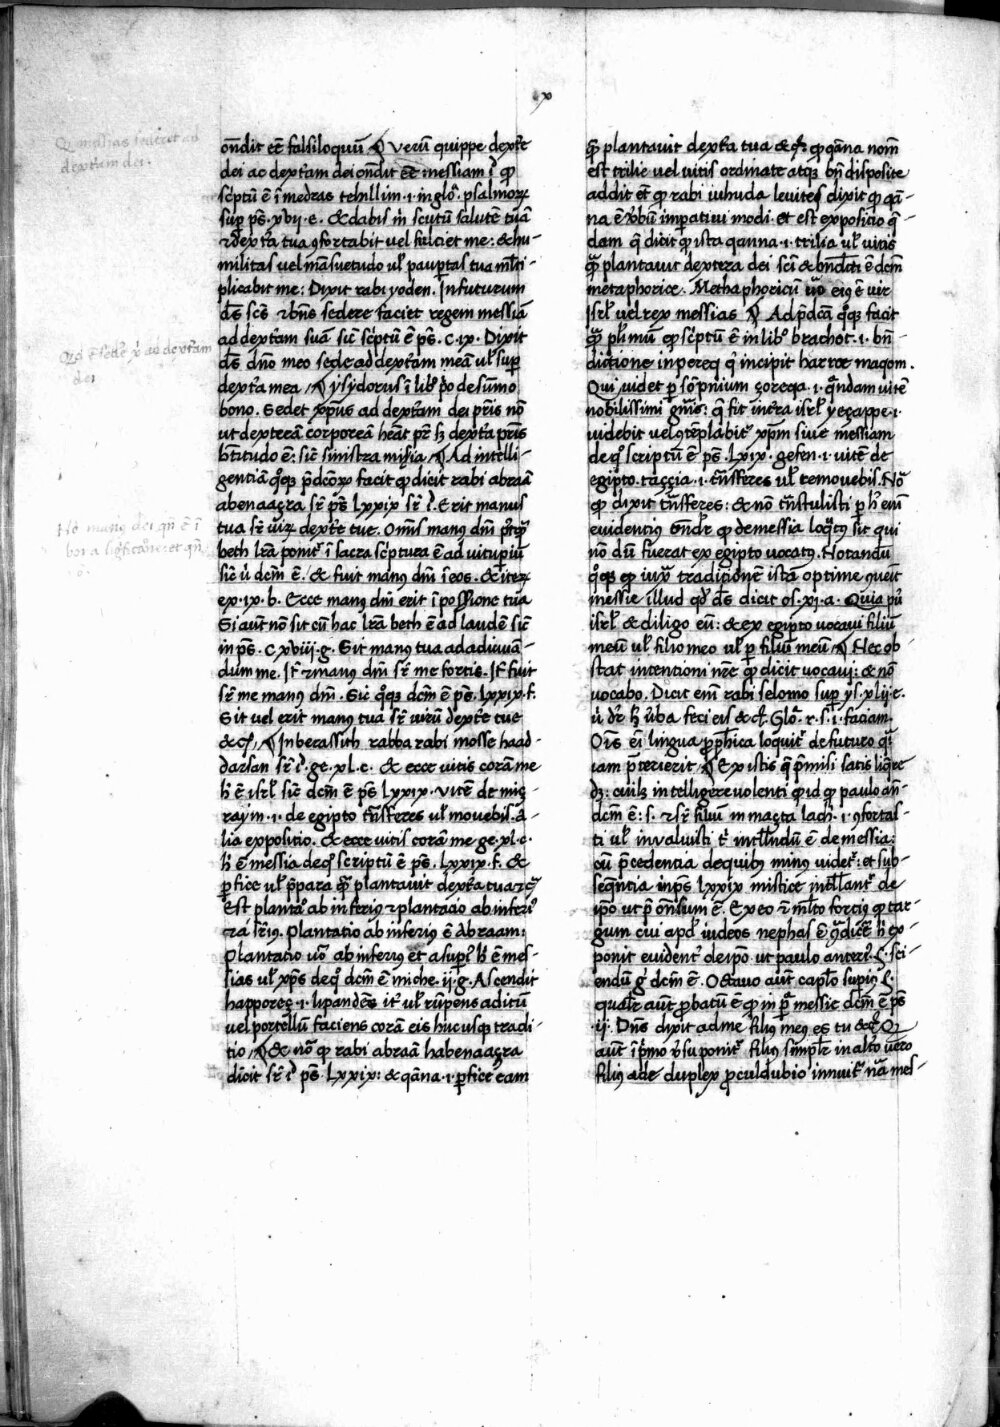 x
Q messias sederet ad
dextram dei.
on̄dit eē falsiloquū ¶ Verū quippe dext̄e
dei ac dextam dei on̄dit eē messiam ī qꝫ
sc̄ptū ē ī medras tehillim .i. in glo. psalmoꝝ
sup ps̄. xvij. e. & dabis m̄ scutū salutē tuā
⁊ dext̄a tua ꝯfortabit vel fulciet me: & hu-
militas vel māsuetudo ul̄ pauꝑtas tua ml̄ti-
plicabit me: Dixit rabi yoden. In futurum
ds̄ scs̄ ⁊ bn̄s sedere faciet regem messiā
ad dextam suā sic̄ sc̄ptū ē ps̄. c. ix. Dixit
ds̄ dn̄o meo sede ad dextam meā ul̄ sup
dext̄a mea ¶ ysydorus ī lib̄ p̄o de sūmo
bono. Sedet xp̄us ad dextam dei pr̄is nō
ut dexterā corporeā heāt pr̄ sꝫ dext̄a pr̄is
bt̄itudo ē: sic̄ sinistra mis̄ia ¶ Ad intelli-
gentiā qꝫ p̄dc̄oꝝ facit qꝫ dicit rabi abraā
abenaaçra sr̄ ps̄ lxxix sr̄ ī. Erit manus
tua sr̄ viꝝ dext̄e tue. Om̄is manꝰ dn̄i
beth lr̄a ponit ī sacra sc̄ptura ē ad vitupiū
sic̄ ú dc̄m ē. & fuit manꝰ dn̄i ī eos. & iteꝝ
ex. ix. b. Ecce manꝰ dn̄i erit ī possione tua
Si aut̄ nō sit cū hac lr̄a beth ē ad laudē sic̄
in ps̄. c xviij. g. Sit manꝰ tua ad adiuuā-
dum me. It̄ ⁊ manꝰ dn̄i sr̄ me fortis. It̄ fuit
sr̄ me manꝰ dn̄i. Sic qꝫ dc̄m ē ps̄. lxxix. f.
Sit vel erit manꝰ tua sr̄ virū dext̄e tue
&c ¶ In berassith rabba rabi mosse haad-
darsan sr̄ ī. ge. xl. c. & ecce vitis corā me
h̄ ē isrl̄ sic̄ dc̄m ē ps̄ lxxix. vitē de miç-
raym .i. de egipto tn̄sferes ul̄ mouebis. a-
lia expositio. & ecce vitis corā me ge. xl. c.
h̄ ē messia de qꝫ scriptū ē ps̄. lxxix. f. &
ꝑfice ul̄ p̄para quā plantauit dext̄a tua
Est planta ab inferiꝰ ⁊ plantatio ab inferiꝰ
⁊ a sr̄iꝰ. Plantatio ab inferiꝰ ē Abraam:
Plantatio vō ab inferiꝰ et a supꝰi h̄ ē mes-
sias ul̄ xp̄s de qꝫ dc̄m ē miche. ij. g. Ascendit
happoreç .i. lipandēs it̄ ul̄ rūpens aditū
vel portellū faciens corā eis huc usqꝫ tradi-
tio ¶ & nō qꝫ rabi abraā habenaaçra
dicit sr̄ ī ps̄ lxxix: & qāna .i. ꝑfice eam
Qd̄ ē sedē x̄ ad dextam
dei
Nō manꝰ dei qn̄ ē ī
quā plantauit dexta tua & qꝫ qꝫ qāna nom̄
est trilie vel vitis ordinate atqꝫ bn̄ disposite
addit et̄ qꝫ rabi iuhuda leuites dixit qꝫ qā-
na ē v̄bū imperatiui modi. et est expositio q̄-
dam q̄ dicit qꝫ ista qanna .i. trilia ul̄ vitis
quā plantauit dextera dei sc̄i & bn̄dc̄ti ē dc̄m
metaphorice. Methaphoricū uō eiꝰ ē vir
isrl̄ vel rex messias ¶ Ad p̄dc̄a qꝫ facit
quā pl̄imū qꝫ sc̄ptū ē in libꝰ brachot .i. bn̄-
dictione in pereq q̄ incipit harroe maqom.
Qui videt ꝑ sōpnium soreqa .i. quandam vitē
nobilissimi gn̄is: q̄ fit inf̄ra isrl̄ yeçappe .i.
videbit vel ꝯtēplabit xp̄m siue messiam
de qꝫ scriptū ē ps̄. lxix. gefen .i. vitē de
egipto taççia .i. tn̄sferes ul̄ remouebis. Nō
qꝫ dixit tn̄sferes: & nō tn̄stulisti ꝑ h̄ em̄
euidentiꝰ on̄dr̄ qꝫ de messia loqꝰtꝰ sit qui
nō dū fuerat ex egipto vocatꝰ. Notandū
qꝫ qꝫ iuxta traditionē istā optime ꝯueit
messie illud qd̄ ds̄ dicit os. xi. a. Quia pu
isrl̄ & diligo eū: & ex egipto vocaui filiū
meū ul̄ filio meo ul̄ ꝑ filiū meū ¶ Nec ob
stat intentioni nr̄e qꝫ dicit vocaui: & nō
vocabo. Dicit em̄ rabi selomo sup ys. xlij. c.
ú dr̄ h̄ v̄ba feci eis & cꝫ. Glo. r. s. i. faciam.
Oīs ei lingua ꝓphica loquit de futuro qͣi
iam p̄terierit ¶ Ex istis q̄ p̄misi satis liqre
dꝫ: cuilꝫ intelligere volenti qꝫ id qꝫ paulo an̄
dc̄m ē: s. ⁊ sr̄ filiū maçta lach .i. ꝯfortas-
ti ul̄ inualuisti t̄ intl̄lndū ē de messia:
cū p̄cedentia de quibꝰ minꝰ videt̄: et sub-
seq̄ntia in ps̄ lxxix mistice intl̄lant̄ de
ip̄o ut p̄ on̄sum ē. Ex eo ⁊ ml̄to fortiꝰ qꝫ tar-
gum cui apd̄ iudeos nephas ē ꝯ̄dice h̄ ex-
ponit euident̄ de ip̄o ut paulo anteri. §. sci-
endū g̊ dc̄m ē. Octauo aut̄ cap̄lo supiꝰ §.
qualr̄ aut̄ ꝓbatū ē qꝫ in p̄a messie dc̄m ē ps̄
.ij. Dn̄s dixit ad me filiꝰ meꝰ es tu &c Qꝫ
aut̄ ī p̄mo v̄su ponit̄ filiꝰ simpl̄r in alto vero
filiꝰ ade duplex ꝓculdubio innuit̄ nā mes-